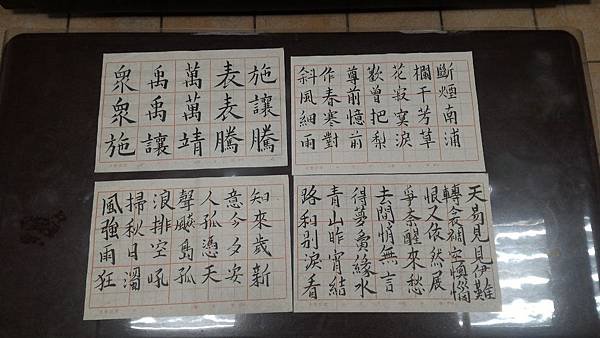 施讓騰
表表騰
萬萬靖
禹禹讓
衆衆施
斷煙南浦
欄干芳草
花寂寞淚
歎曾把梨
尊前憶前
作春寒對
斜風細雨
知來歲新
意今夕安
人孤憑天
聲颼島孤
浪排空吼
掃秋日濁
風強雨狂
天易見見伊難
轉空懊惱
恨又依然展
爭奈醒來愁
悄無言
得夢緣水
青山昨宵結
路和別淚看